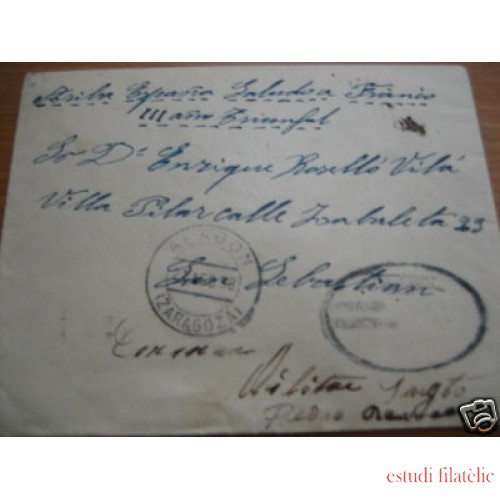 Arriba España Saludo a Franco
III año Triunfal
Sr Dn Enrique Roselló Vilá
Villa Pilar calle Zabaleta 33
San Sebastian
ALAGON
(ZARAGOZA)
Censura
Militar Sargto
Pedro
estudi filatèlic